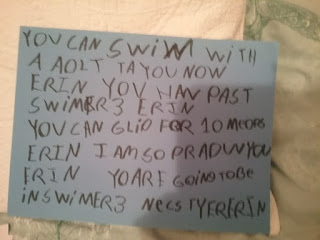 YOU CAN SWiM WiTH
A AOLT TA YOU NOW
ERIN YOU HAV PAST
SWIMER3 ERIN
YOU CAN GLID FOR 10 MEORS
ERIN I AM SO PRADUV YOU
ERIN YOARE GOING TO BE
iN SWIMER3 NECST YER ERIN